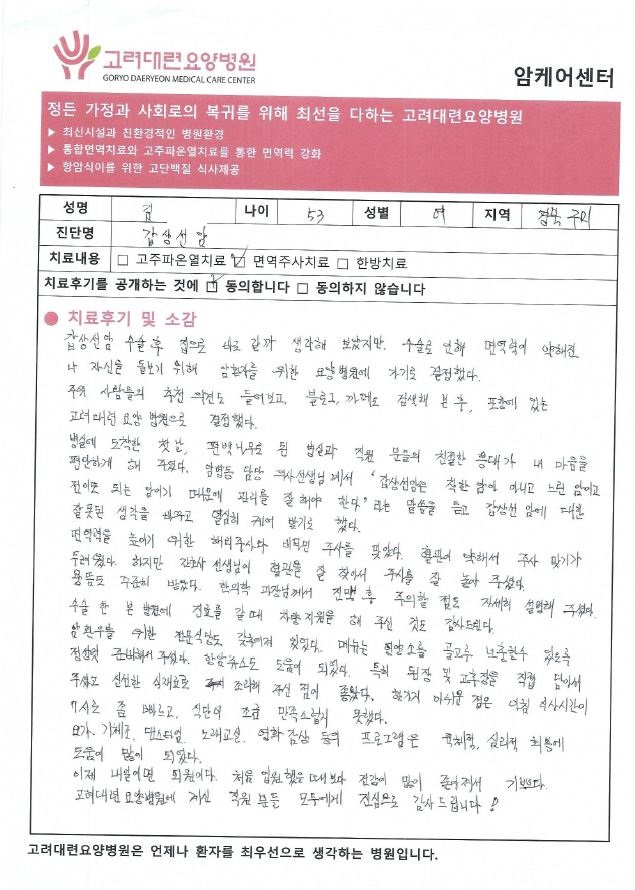 고려대련요양병원
GORYO DAERYEON MEDICAL CARE CENTER
암케어센터
정든 가정과 사회로의 복귀를 위해 최선을 다하는 고려대련요양병원
▶ 최신시설과 친환경적인 병원환경
▶ 통합면역치료와 고주파온열치료를 통한 면역력 강화
▶ 항암식이를 위한 고단백질 식사제공
성명 김 나이 53 성별 여 지역 경북 구미
진단명 갑상선암
치료내용 □ 고주파온열치료 ☑ 면역주사치료 □ 한방치료
치료후기를 공개하는 것에 ☑ 동의합니다 □ 동의하지 않습니다
● 치료후기 및 소감
갑상선암 수술 후 집으로 바로 갈까 생각해 보았지만, 수술로 인해 면역력이 약해진
나 자신을 돌보기 위해 암환자를 위한 요양병원에 가기로 결정했다.
주위 사람들의 추천 의견도 들어보고, 블로그, 카페도 검색해 본 후, 포항에 있는
고려대련 요양 병원으로 결정했다.
병실에 도착한 첫날, 편백나무로 된 병실과 직원 분들의 친절한 응대가 내 마음을
편안하게 해 주었다. 담당 의사선생님께서 '갑상선암은 착한 암이 아니고 느린 암이고
전이도 되는 암이기 때문에 관리를 잘 해야 한다' 라는 말씀을 듣고 갑상선 암에 대한
잘못된 생각을 바꾸고 열심히 케어 받기로 했다.
면역력을 높이기 위한 헤리주사와 비타민 주사를 맞았다. 혈관이 약해서 주사 맞기가
두려웠다. 하지만 간호사 선생님이 혈관을 잘 찾아서 주사를 잘 놓아 주셨다.
쑥뜸도 꾸준히 받았다. 한의학 과장님께서 진맥 후 주의할 점도 자세히 설명해 주셨다.
수술 한 본 병원에 진료를 갈 때 차량지원을 해 주신 것도 감사드린다.
암환우를 위한 전문식당도 갖추어져 있었다. 메뉴는 영양소를 골고루 섭취할수 있도록
정성껏 준비해서 주셨다. 항암쥬스도 도움이 되었다. 특히 된장 및 고추장을 직접 담아서
주셨고 신선한 식재료로 조리해 주신 점이 좋았다. 한가지 아쉬울 점은 아침 식사시간이
7시로 좀 빠르고, 식단이 조금 만족스럽지 못했다.
요가, 기체조, 댄스타임, 노래교실, 영화감상 등의 프로그램은 육체적, 심리적 회복에
도움이 많이 되었다.
이제 내일이면 퇴원이다. 처음 입원했을 때 보다 건강이 많이 좋아져서 기쁘다.
고려대련요양병원에 계신 직원 분들 모두에게 진심으로 감사 드립니다!
고려대련요양병원은 언제나 환자를 최우선으로 생각하는 병원입니다.